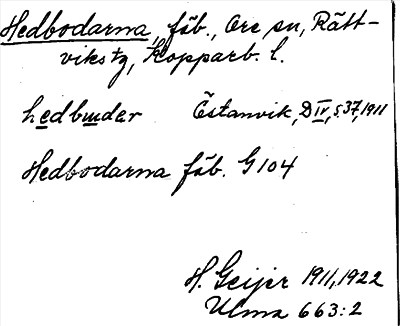 Hedbodarna, fäb., Ore sn, Rätt-
viks tg, Kopparb. l.
hedbuder Östanvik, D IV, s. 37, 1911
Hedbodarna fäb. G 104
H. Geijer 1911, 1922
Ulma 663:2